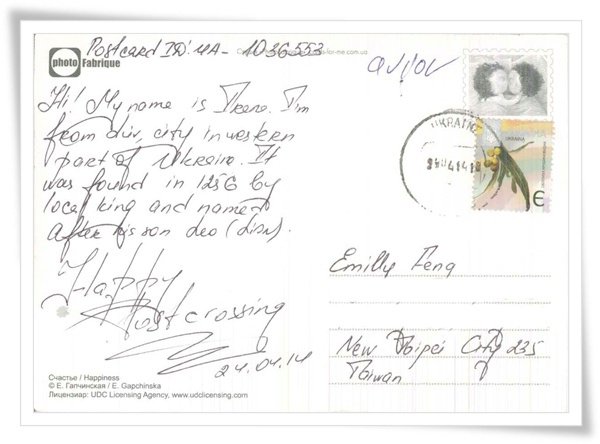 Postcard ID: UA-1036553
photo
Fabrique
Hi! My name is I'm
from city in western
part of Ukraine. It
was found in 1256 by
local king and named
after his son Leo
Happy
Postcrossing
24.04.14
UKRAINE
УКРАЇНА
Є
Emilly Feng
New Taipei City 235
Taiwan
Счастье / Happiness
© Е. Гапчинская / E. Gapchinska
Лицензиар: UDC Licensing Agency, www.udclicensing.com